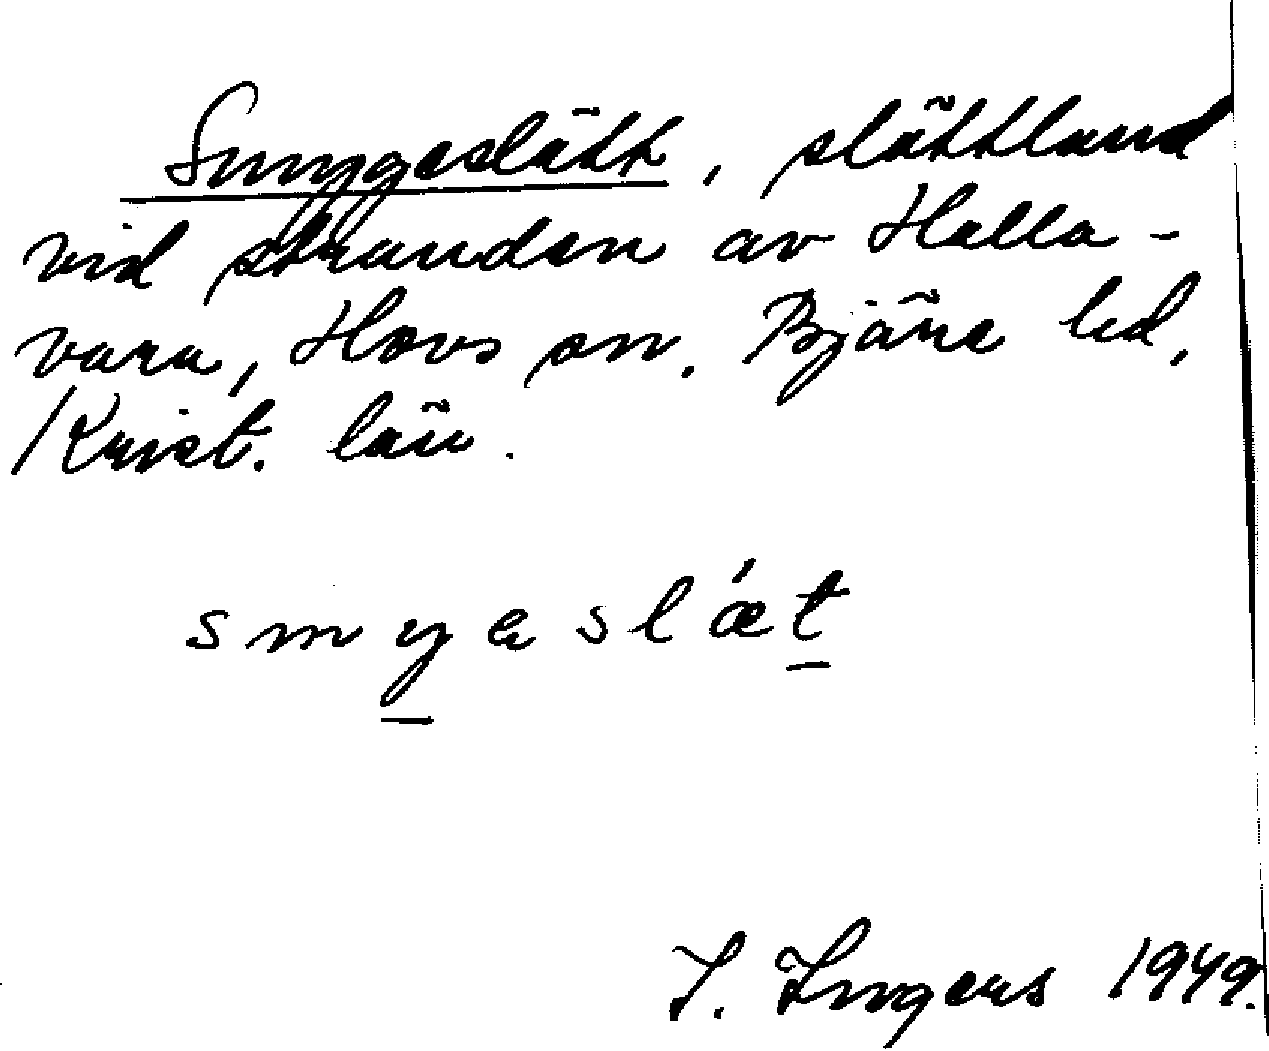 Smygeslätt, slättland
vid stranden av Halla-
vara, Hovs sn. Bjäre hd,
Krist. län.
smyɐslǽt
I. Ingers 1949.